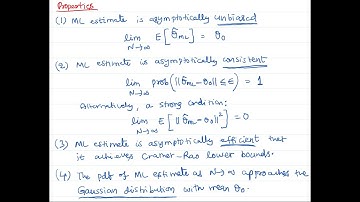 Properties
(1) ML estimate is asymptotically unbiased
lim N→∞ E[θ̂_ML] = θ₀
(2) ML estimate is asymptotically consistent
lim N→∞ prob(||θ̂_ML-θ₀|| ≤ ϵ) = 1
Alternatively, a strong condition:
lim N→∞ E[||θ̂_ML-θ₀||²] = 0
(3) ML estimate is asymptotically efficient that
it achieves Cramer-Rao lower bounds.
(4) The pdf of ML estimate as N→∞ approaches the
Gaussian distribution with mean θ₀.